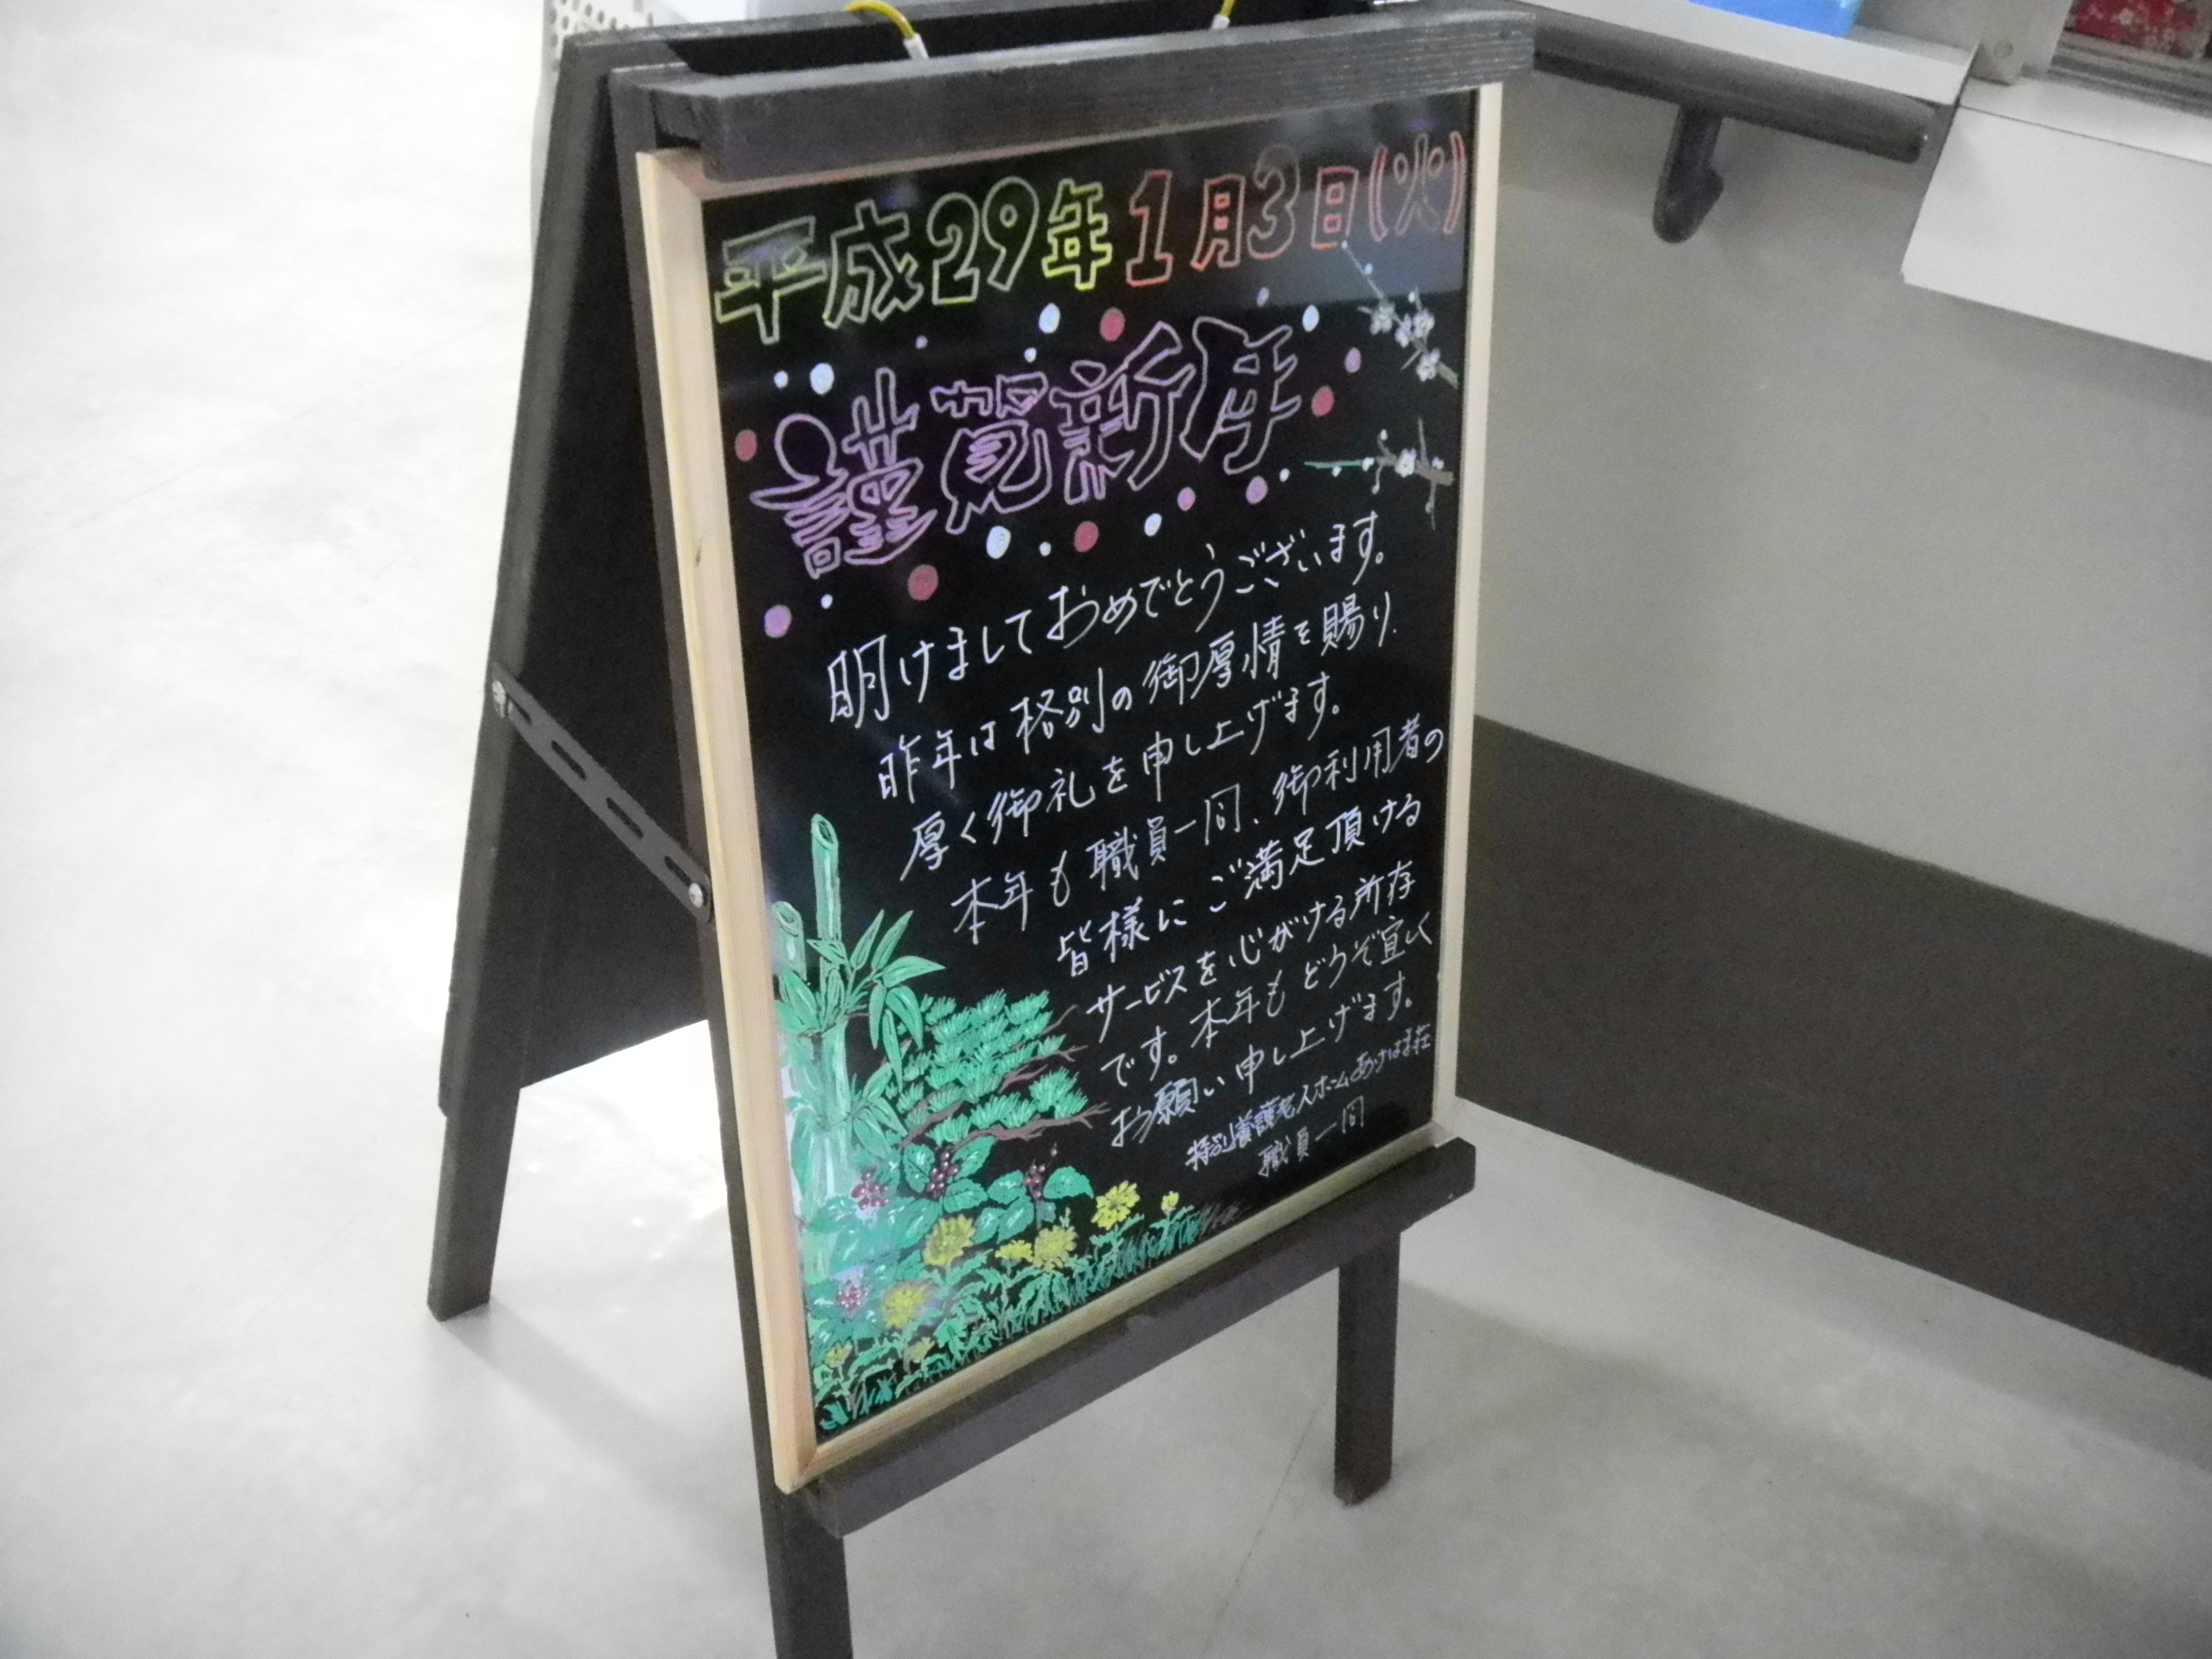 平成29年1月3日(火)
謹賀新年
明けましておめでとうございます。
昨年は格別の御厚情を賜り、
厚く御礼を申し上げます。
本年も職員一同、御利用者の
皆様にご満足頂ける
サービスを心がける所存
です。本年もどうぞ宜しく
お願い申し上げます。
特別養護老人ホームあけはま荘
職員一同